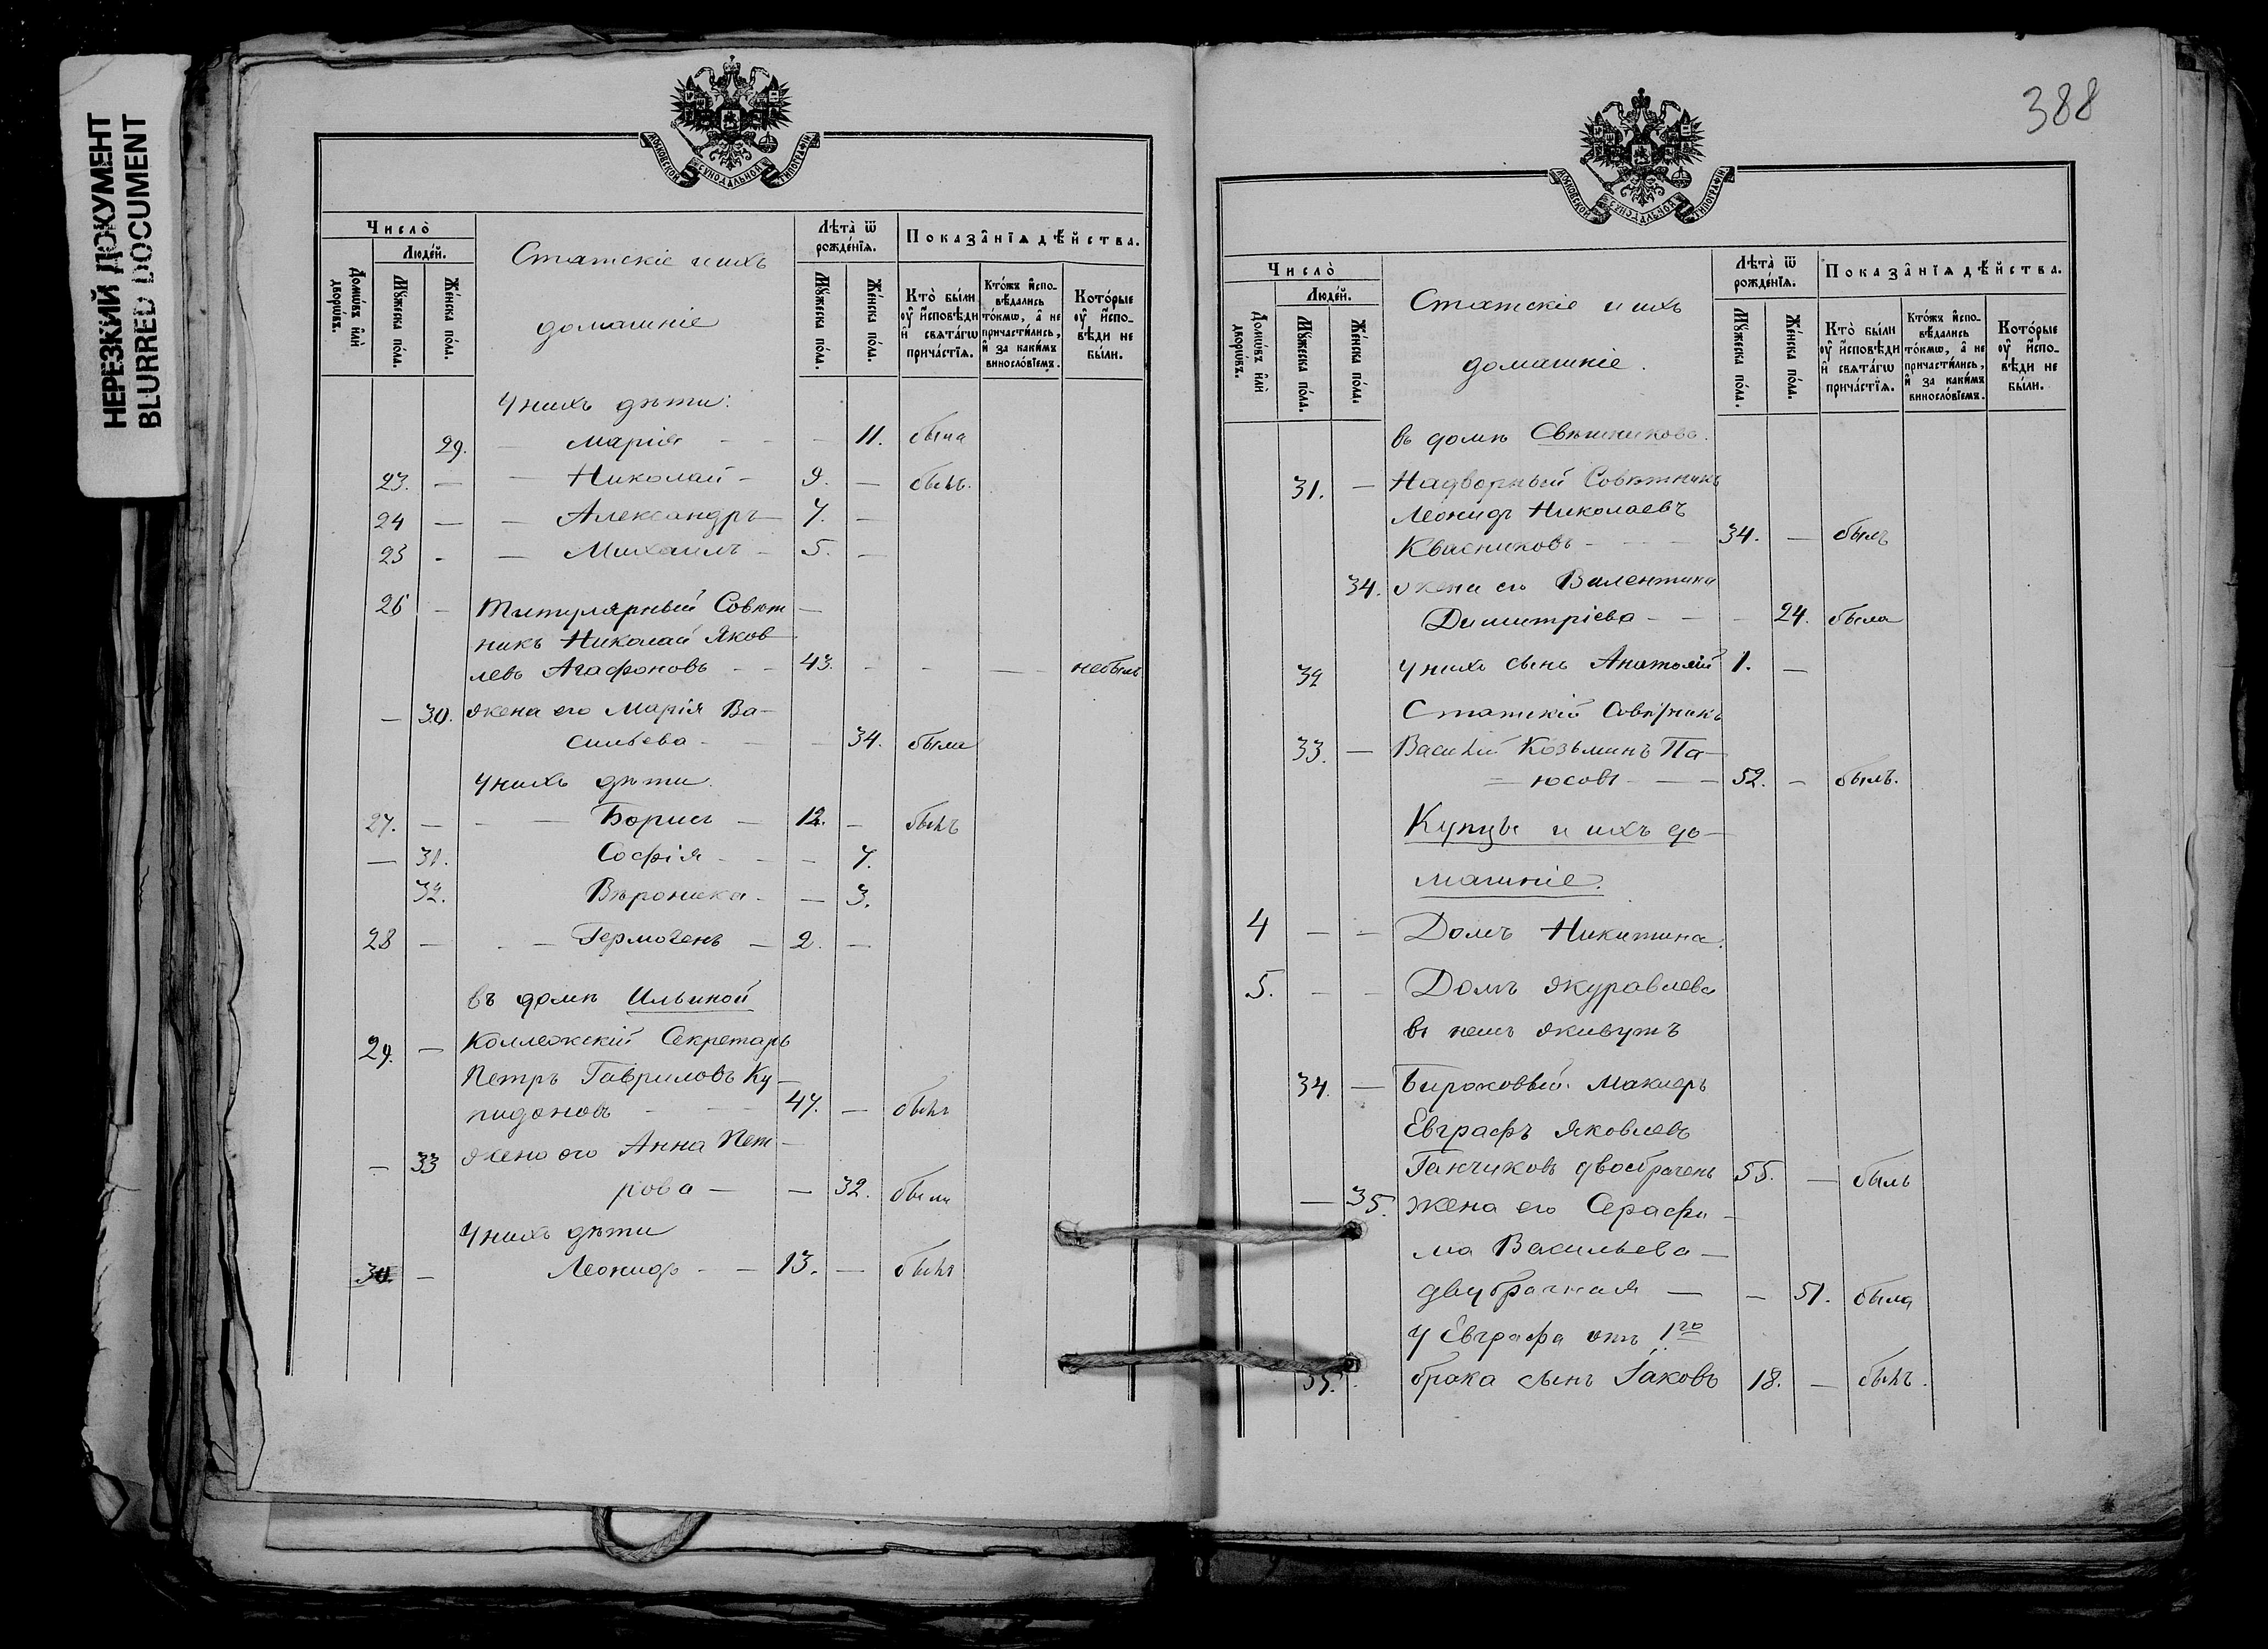 НЕРЕЗКИЙ ДОКУМЕНТ
BLURRED DOCUMENT
МОСКОВСКОЙ СѴНОДАЛЬНОЙ ТИПОГРАФІИ
Число̀
Люде́й.
Домѡ́въ и҆лѝ дворѡ́въ.
Мꙋ́жеска по́ла.
Же́нска по́ла.
Статскіе и ихъ
домашніе
Лѣта̀ ѿ рожде́нїѧ.
Мꙋ́жеска по́ла.
Же́нска по́ла.
Показа̂нїѧ дѣ́йства.
Кто̀ бы́ли оу҆ и҆сповѣди и҆ свѧта́гѡ прича́стїѧ.
Кто́жъ и҆спо-вѣдались то́кмѡ, а҆ не причасти́лись, и҆ за каки́мъ винослов́їемъ.
Кото́рые оу҆ и҆спо-вѣди не бы́ли.
У нихъ дѣти:
29. — Марія - - - 11. была
23. — — Николай - 9. — былъ.
24 — — Александръ — 7. —
25 - — Михаилъ - 5. —
26 - Титулярный Совѣт —
никъ Николай Яков
левъ Агафоновъ - - 43. - - — небылъ
— 30. жена его Марія Ва-
сильева - - - 34. была
У нихъ дѣти.
27. — - — Борисъ - 12. — былъ
— 31. София - - - 7.
32. Вѣроника - — 3.
28 — - — Гермогенъ — 2. —
въ домѣ Ильиной
29. — Коллежскій Секретарь
Петръ Гавриловъ Ку-
пидоновъ - - 47. — былъ
— 33 жена его Анна Пет-
рова — — 32. была
У нихъ дѣти
30. — Леонидъ - - 13. — былъ
388
МОСКОВСКОЙ СѴНОДАЛЬНОЙ ТИПОГРАФІИ
Число̀
Люде́й.
Домѡ́въ и҆лѝ дворѡ́въ.
Мꙋ́жеска по́ла.
Же́нска по́ла.
Статскіе и ихъ
домашніе.
Лѣта̀ ѿ рожде́нїѧ.
Мꙋ́жеска по́ла.
Же́нска по́ла.
Показа̂нїѧ дѣ́йства.
Кто̀ бы́ли оу҆ и҆сповѣди и҆ свѧта́гѡ прича́стїѧ.
Кто́жъ и҆спо-вѣдались то́кмѡ, а҆ не причасти́лись, и҆ за каки́мъ винослов́їемъ.
Кото́рые оу҆ и҆спо-вѣди не бы́ли.
въ домѣ Свѣшникова.
31. — Надворный Совѣтникъ
Леонидъ Николаевъ
Квасниковъ - - - 34. — былъ
34. жена его Валентина
Димитріева - - - 24. была
32 У нихъ сынъ Анатолій 1. —
Статскій Совѣтникъ
33. — Василій Козьминъ Па-
юсовъ - — - 52. - былъ.
Купцы и ихъ до-
машніе.
4 — — Домъ Никитина.
5. — — Домъ Журавлева
въ немъ живутъ
34. — Биржовый Маклеръ
Евграфъ Яковлевъ
Ганчиковъ двоебраченъ 55. — былъ
— 35. жена его Серафи-
ма Васильева —
двубрачная — — 51. была
У Евграфа отъ 1го
35. брака сынъ Іаковъ 18. — былъ.